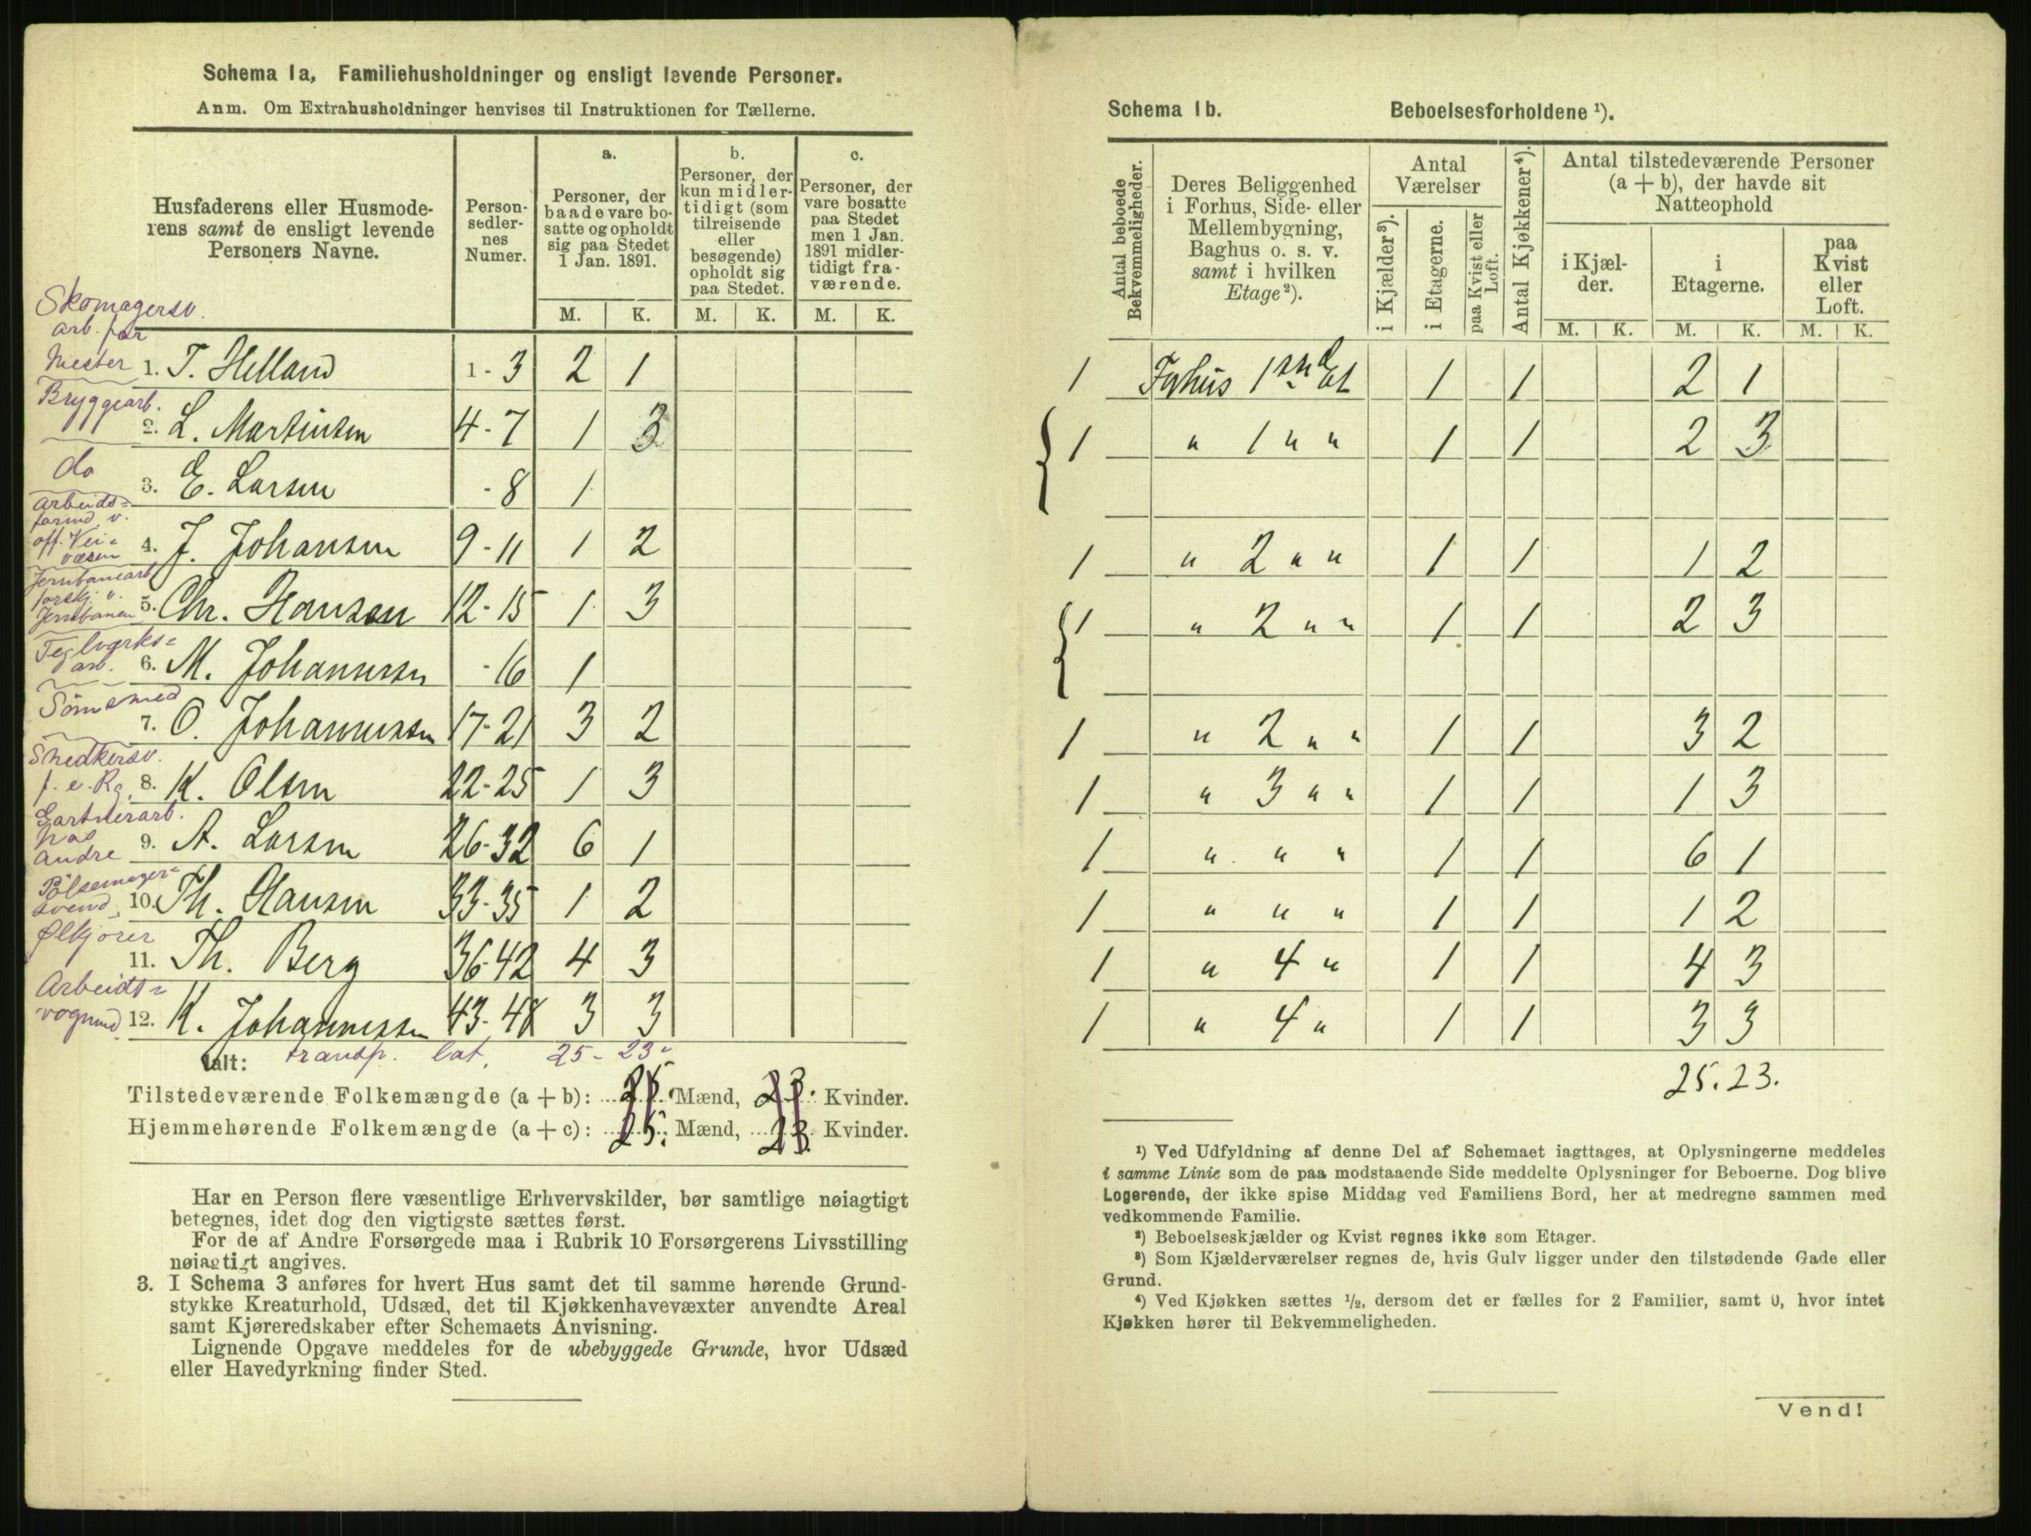 Schema 1a, Familiehusholdninger og ensligt levende Personer.
Anm. Om Extrahusholdninger henvises til Instruktionen for Tællerne.
Husfaderens eller Husmode-
rens samt de ensligt levende
Personers Navne.
Person-
sedler-
nes
Numer.
a.
Personer, der
baade vare bo-
satte og opholdt
sig paa Stedet
1 Jan. 1891.
b.
Personer, der
kun midler-
tidigt (som
tilreisende
eller
besøgende)
opholdt sig
paa Stedet.
c.
Personer, der
vare bosatte
paa Stedet
men 1 Jan.
1891 midler-
tidigt fra-
værende.
M. K. M. K. M. K.
Skomagersv.
arb. for
Mester 1. T. Helland 1-3 2 1
Bryggearb.
2. L. Martinsen 4-7 1 3
do
3. E. Larsen -8 1
Arbeids=
formd v.
off. Vei=
væsen 4. J. Johansen 9-11 1 2
Jernbanearb
forskj. v.
Jernbanen 5. Chr. Hansen 12-15 1 3
Teglværks=
arb. 6. M. Johannessen -16 1
Sömsmed
7. O. Johannessen 17-21 3 2
Snedkersv.
f. e. Rg. 8. K. Olsen 22-25 1 3
Gartnerarb.
hos
andre 9. A. Larsen 26-32 6 1
Pölsemager=
svend 10. Th. Hansen 33-35 1 2
Ølkjører
11. Th. Berg 36-42 4 3
Arbeids=
vognmd. 12. K. Johannessen 43-48 3 3
Ialt: transp. lat. 25- 23-
Tilstedeværende Folkemængde (a + b): 25. Mænd, 23. Kvinder.
Hjemmehørende Folkemængde (a + c): 25. Mænd, 23. Kvinder.
Har en Person flere væsentlige Erhvervskilder, bør samtlige nøiagtigt
betegnes, idet dog den vigtigste sættes først.
For de af Andre Forsørgede maa i Rubrik 10 Forsørgerens Livsstilling
nøiagtigt angives.
3. I Schema 3 anføres for hvert Hus samt det til samme hørende Grund-
stykke Kreaturhold, Udsæd, det til Kjøkkenhavevæxter anvendte Areal
samt Kjøreredskaber efter Schemaets Anvisning.
Lignende Opgave meddeles for de ubebyggede Grunde, hvor Udsæd
eller Havedyrkning finder Sted.
Schema 1b. Beboelsesforholdene ¹).
Antal beboede
Bekvemmeligheder.
Deres Beliggenhed
i Forhus, Side- eller
Mellembygning,
Baghus o. s. v.
samt i hvilken
Etage²).
Antal
Værelser
i Kjælder³).
i Etagerne.
paa Kvist eller
Loft.
Antal Kjøkkener⁴).
Antal tilstedeværende Personer
(a + b), der havde sit
Natteophold
i Kjæl-
der.
i
Etagerne.
paa
Kvist
eller
Loft.
M. K. M. K. M. K.
1 Forhus 1ste Et 1 1 2 1
1 " 1 " " 1 1 2 3
1 " 2 " " 1 1 1 2
1 " 2 " " 1 1 2 3
1 " 2 " " 1 1 3 2
1 " 3 " " 1 1 1 3
1 " " " 1 1 6 1
1 " " " 1 1 1 2
1 " 4 " 1 1 4 3
1 " 4 " 1 1 3 3
25. 23.
¹) Ved Udfyldning af denne Del af Schemaet iagttages, at Oplysningerne meddeles
i samme Linie som de paa modstaaende Side meddelte Oplysninger for Beboerne. Dog blive
Logerende, der ikke spise Middag ved Familiens Bord, her at medregne sammen med
vedkommende Familie.
²) Beboelseskjælder og Kvist regnes ikke som Etager.
³) Som Kjælderværelser regnes de, hvis Gulv ligger under den tilstødende Gade eller
Grund.
⁴) Ved Kjøkken sættes ½, dersom det er fælles for 2 Familier, samt 0, hvor intet
Kjøkken hører til Bekvemmeligheden.
Vend!